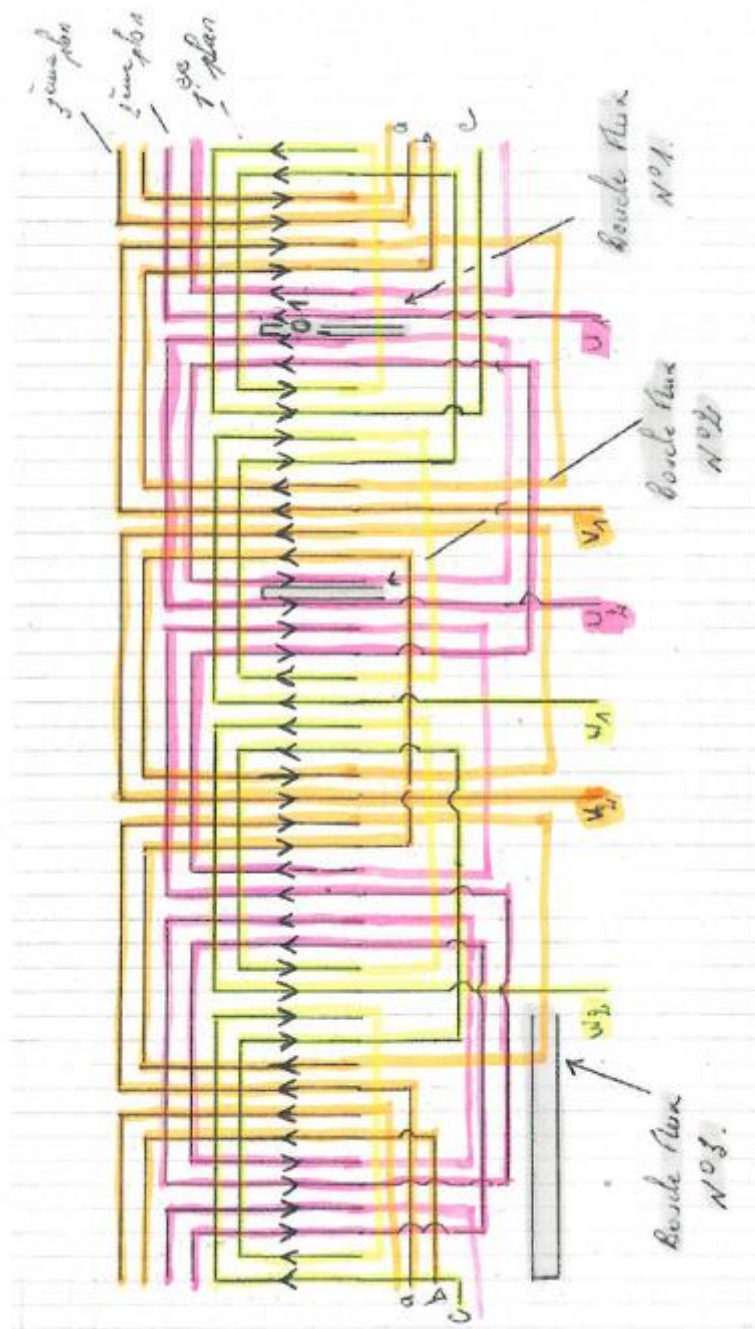 3ème plan
2ème plan
1er plan
a
b
c
Boucle Flux
N°1.
N°1
U1
Boucle Flux
N°2
V1
U2
W1
V2
W2
Boucle Flux
N°3.
a
b
c